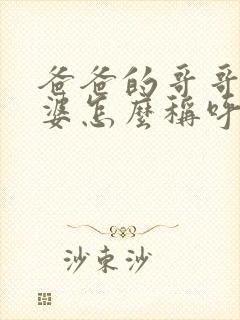 爸爸的哥哥
婆怎麼稱呼
沙束沙